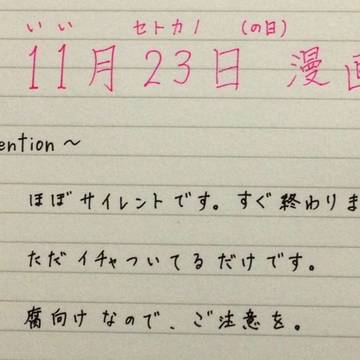 いい セトカノ (の日)
11月23日 漫画
ention～
ほぼサイレントです。すぐ終わりま
ただイチャついてるだけです。
腐向けなので、ご注意を。